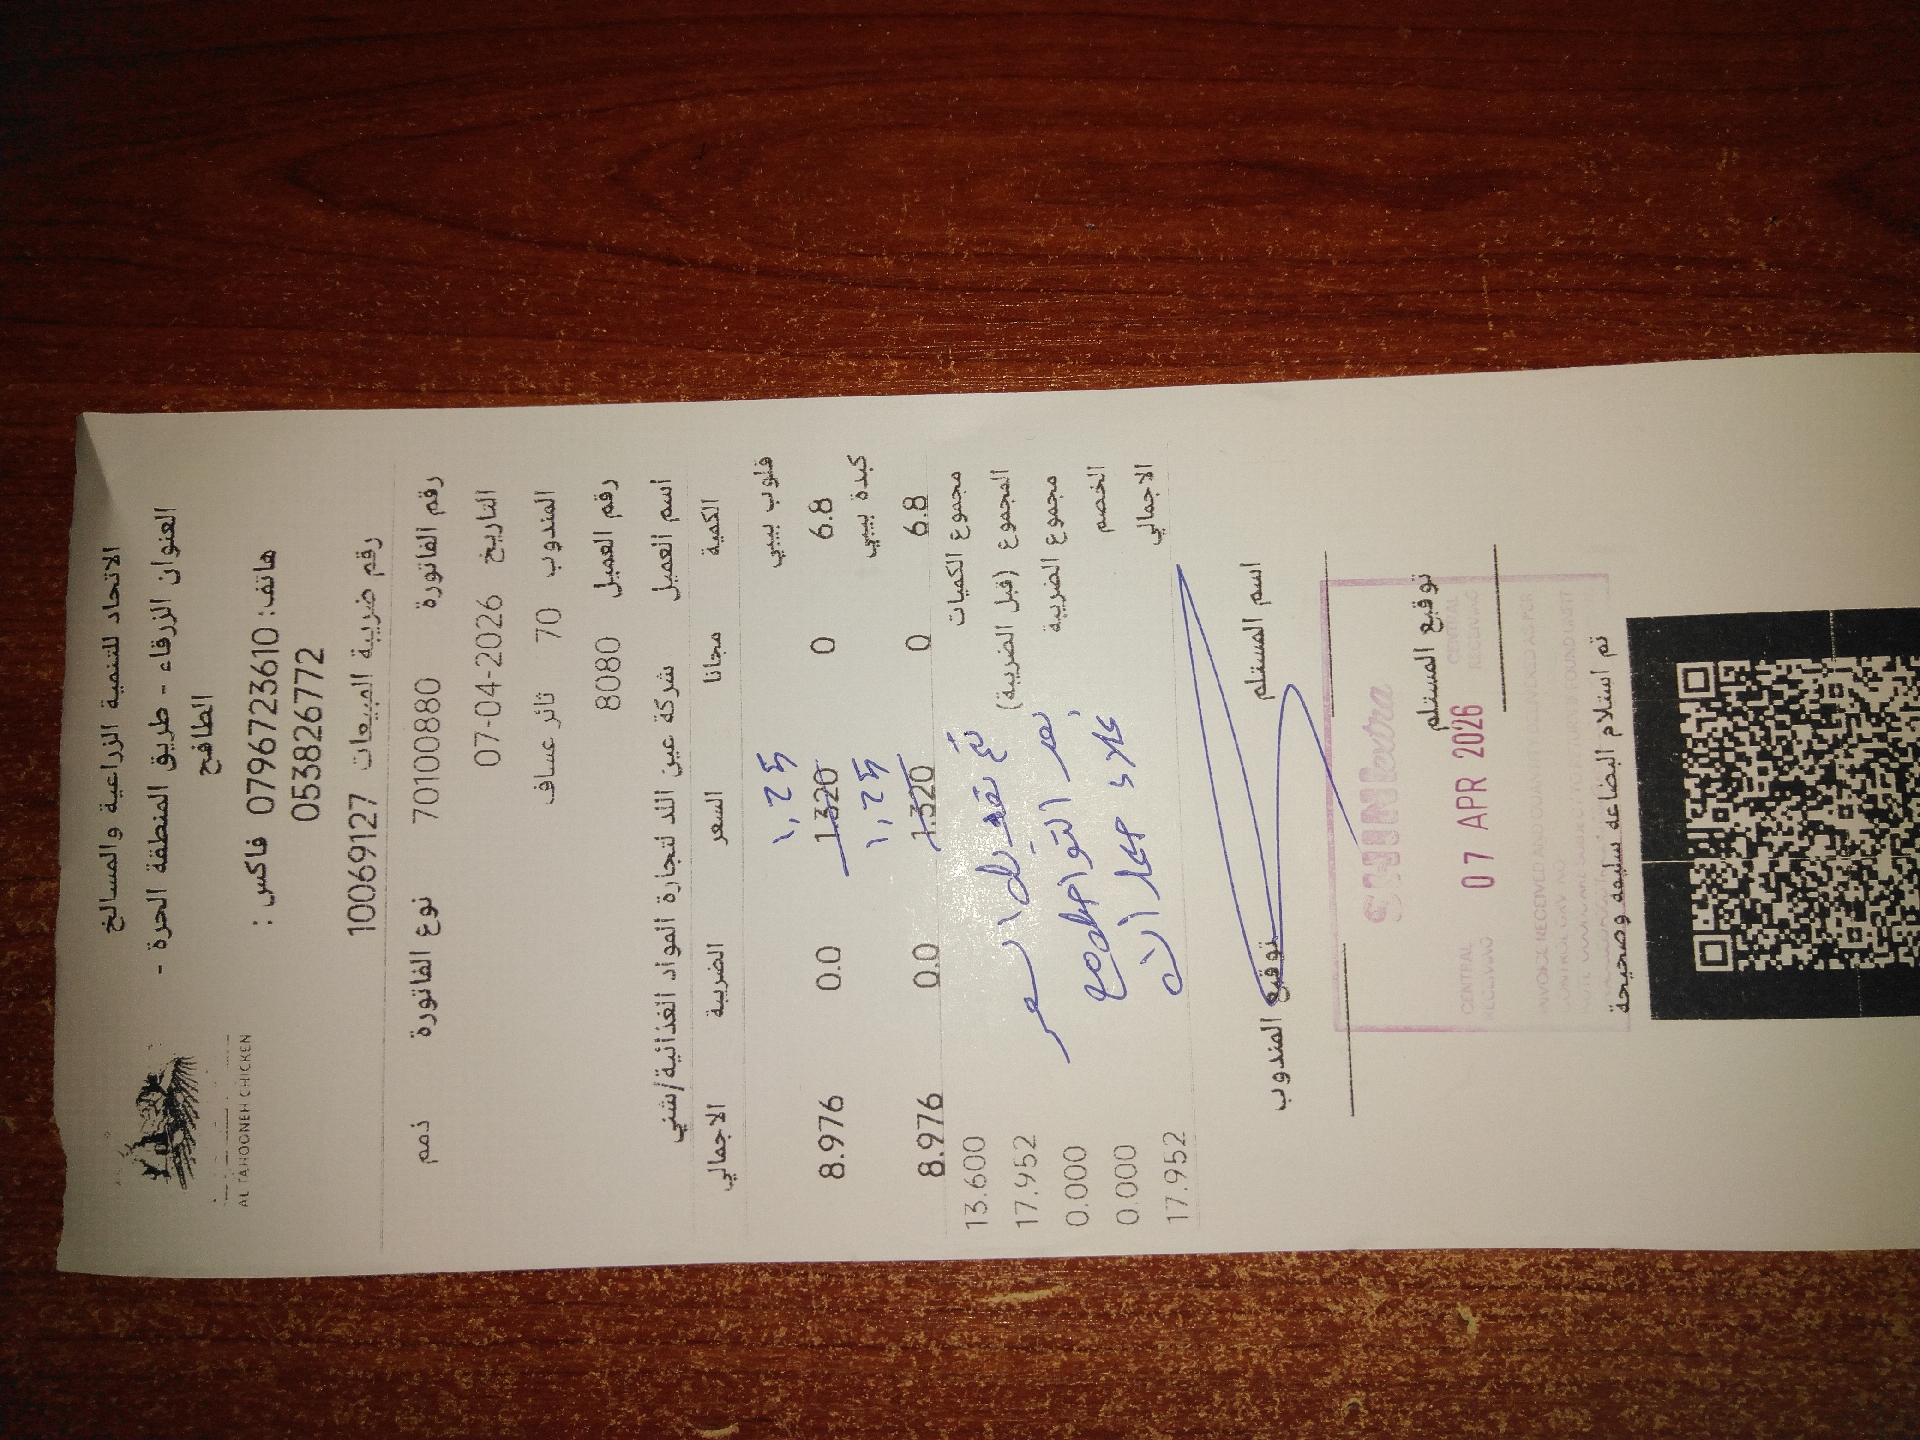 AL TAHOONEH CHICKEN
الاتحاد للتنمية الزراعية والمسالخ
العنوان الزرقاء - طريق المنطقة الحرة -
الطافح
هاتف: 0796723610 فاكس :
053826772
رقم ضريبة المبيعات 10069127
رقم الفاتورة 70100880 نوع الفاتورة ذمم
التاريخ 07-04-2026
المندوب 70 ثائر عساف
رقم العميل 8080
اسم العميل شركة عين اللذ لتجارة المواد الغذائية/شني
الكمية مجانا السعر الضريبة الاجمالي
قلوب بيبي ١,٢٥
6.8 0 1.320 0.0 8.976
كبدة بيبي ١,٢٥
6.8 0 1.320 0.0 8.976
مجموع الكميات 13.600
المجموع (قبل الضريبة) 17.952
مجموع الضريبة 0.000
الخصم 0.000
الاجمالي 17.952
تم تعديل السعر
بعد التواصل مع
علاء
اسم المستلم
توقيع المندوب
توقيع المستلم
extra
07 APR 2026
CENTRAL RECEIVING
CENTRAL RECEIVING
تم استلام البضاعه سليمه وصحيحة